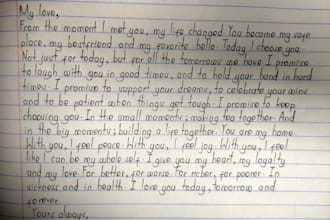 My love,
From the moment I met you, my life changed. You became my safe
place, my bestfriend and my favorite hello. Today I choose you.
Not just for today, but for all the tomorrows we have I promise
to laugh with you in good times, and to hold your hand in hard
times. I promise to support your dreams, to celebrate your wins
and to be patient when things get tough. I promise to keep
choosing you. In the small moments; making tea together. And
in the big moments; building a life together. You are my home.
With you, I feel peace. With you, I feel joy. With you, I feel
like I can be my whole self. I give you my heart, my loyalty
and my love. For better, for worse. For richer, for poorer. In
sickness and in health. I love you today, tomorrow and
forever.
Yours always,